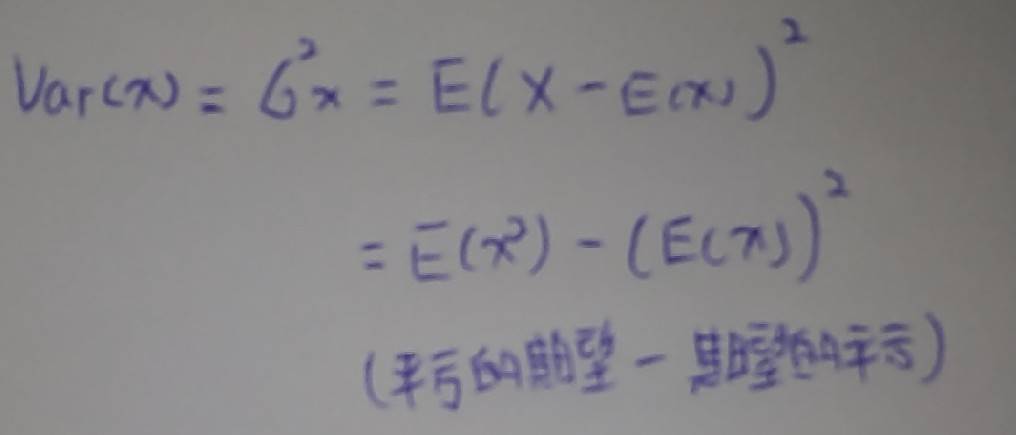 Var(x) = σ²x = E(X - E(x))²
= E(x²) - (E(x))²
(平方的期望 - 期望的平方)